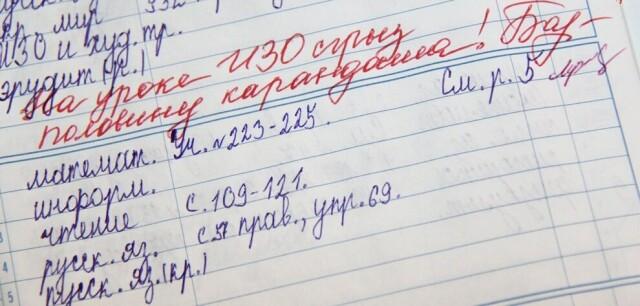 мир
ИЗО и худ. тр.
эрудит (кр.)
На уроке ИЗО сгрыз
половину карандаша! Баз-
См. р. 5
математ. Уч. №223-225.
информ.
чтение с. 109-121.
русск. яз. прав., упр. 69.
русск. яз. (кр.)
3
4
5